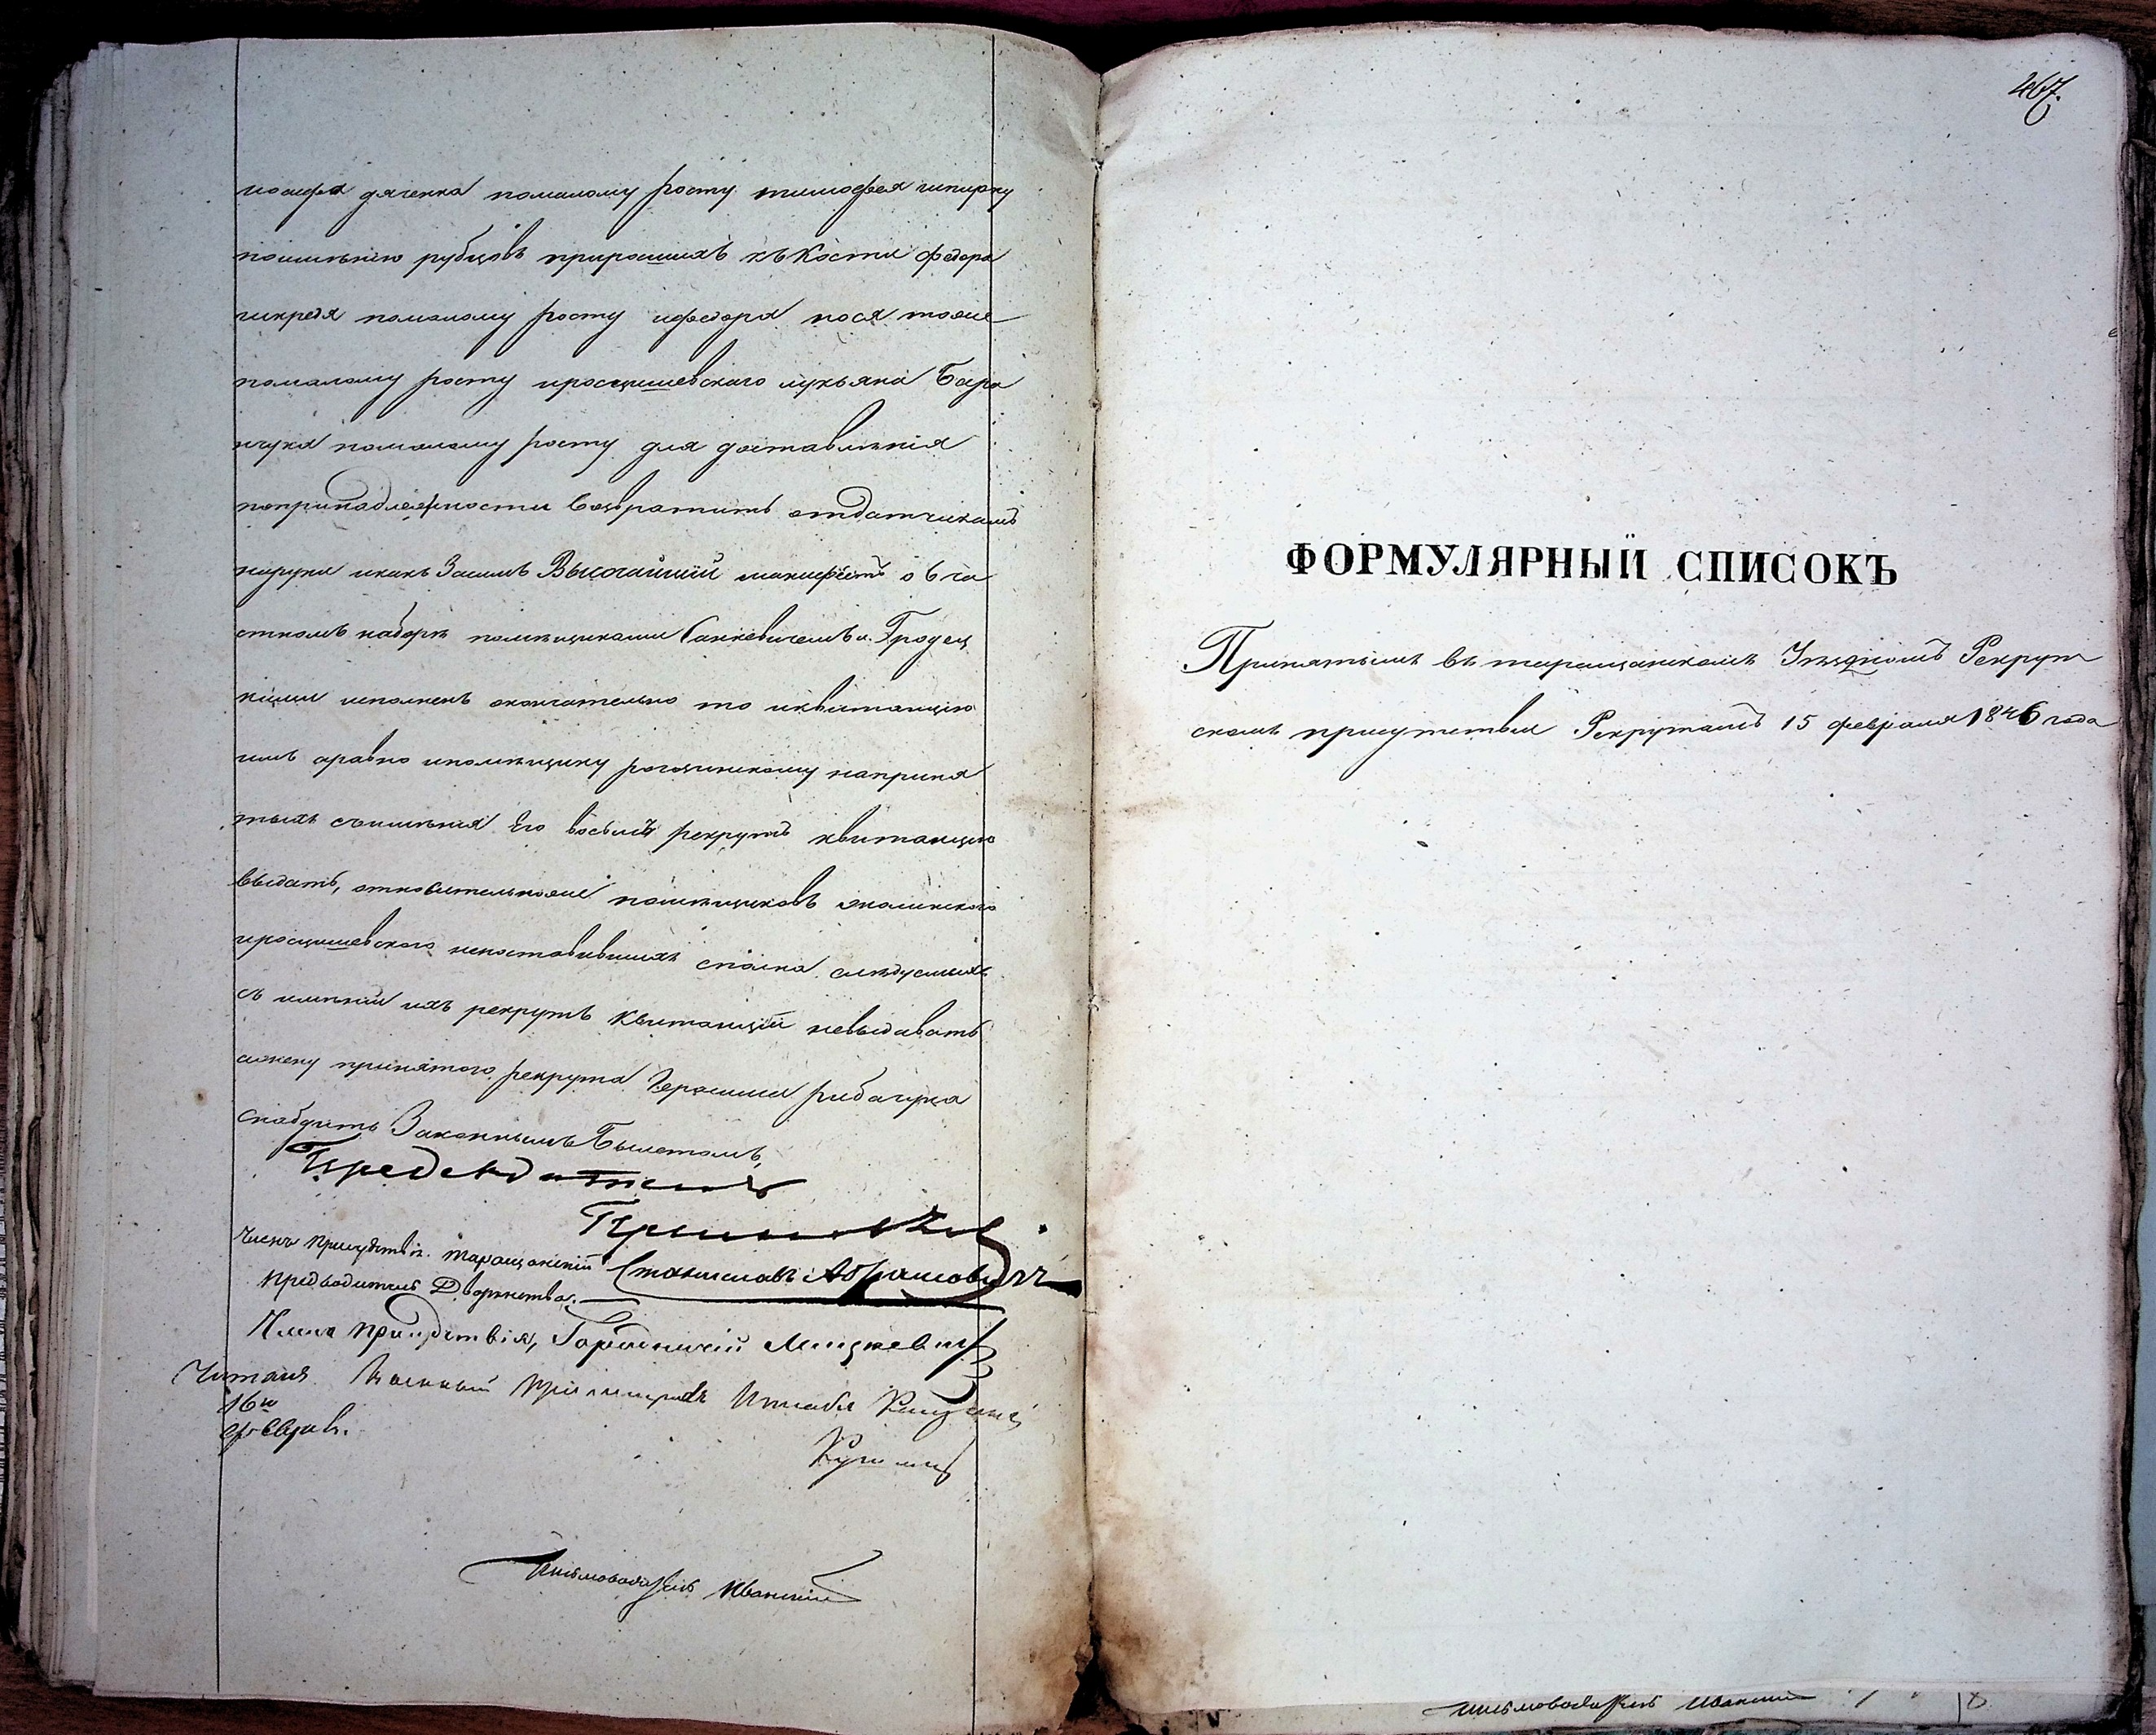 иосифа дяченка помалому росту тимофея
поимѣнію рубцовъ приросшихъ къ кости федора
помалому росту ифедора кося тоже
помалому росту ипросцишевскаго лукьяна Бара
нчука помалому росту для доставленія
попринадлежности возвратить отдатчикамъ
наруки икакъ Засимъ Высочайшій манифестъ объ ча
стномъ наборѣ помѣщиками Санкевичемъ и Гродец
кимъ исполненъ окончательно то иквитанцію
имъ аравно ипомѣщику рогозинскому напринятыхъ
симѣнія Его восьмъ рекрутъ квитанцію
выдать, относительноже помѣщиковъ
ипросцишевскаго непоставившихъ сполна слѣдуемыхъ
съ имѣній ихъ рекрутъ квитанцій невыдавать
ажену принятого рекрута Герасима рибачука
снабдить Законнымъ Билетомъ,
Предсѣдатель
Членъ присудствія. таращанскій Станиславъ Абрамовичъ
предводитель Дворянства.
Члена присудствія, Городничій Мицкевичъ
Читалъ Военный пріемщикъ Штабсъ Капитанъ
16го
Февраля.
Письмоводитель Иванскій
467.
ФОРМУЛЯРНЫЙ СПИСОКЪ
Принятымъ въ таращанскомъ Уѣздномъ Рекрут
скомъ присутствіи Рекрутамъ 15 февраля 1846 года
письмоводитель Иванскій